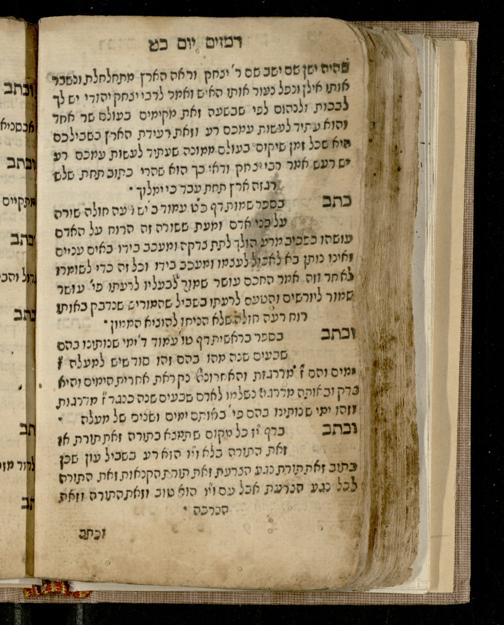 רמזים יום כט
שהיה ישן שם ישב שם ר' יצחק וראה הארץ מתחלחלת ונשבר
אותו אילן ונפל נעור אותו האיש ואמר לרבי יצחק יהודי יש לך
לבכות ולנהום לפי שבשעה זאת מקימים בעולם שר אחד
והוא עתיד לעשות עמכם רע וזאת רעידת הארץ בשבילכם
היא שכל זמן שיקום בעולם ממונה שעתיד לעשות עמכם רע
יש רעש אמר רבי יצחק ודאי כך הוא שהרי כתוב תחת שלש
רגזה ארץ תחת עבד כי ימלוך
כתב
בספר שמות דף עמוד ב' יש רעה חולה שורה
על בני אדם ומעת ששורה זה הרוח על האדם
עושהו בשביל הולך לתת צדקה ומעכב בידו באים עניים
ואינו נותן בא לאכול לעצמו ומעכב בידו וכל זה כדי לשומרו
לאחר וזה אמר החכם עושר שמור לבעליו לרעתו פי' עושר
שמור ליורשים והטעם לרעתו בשביל שהמוריש שנדבק באותו
רוח רעה חולה שלא הניחו להוציא הממון
וכתב
בספר בראשית דף עמוד ד' ימי שנותינו בהם
שבעים שנה מהו בהם זהו סוד שיש למעלה ז'
ימים והם ז' מדרגות והאחרונה נקראת אחרית הימים והיא
צדק ובאותה מדרגה נשלמו לאדם שבעים שנה כנגד ז' מדרגות
וזהו ימי שנותינו בהם פי' באותם ימים ושנים של מעלה
וכתב
בדף כל מקום שתמצא בתורה זאת תורת או
זאת התורה בלא ו'ו הוא רע בשביל עון שכן
כתוב זאת תורת נגע הצרעת זאת תורת הקנאות זאת התורה
לכל נגע הצרעת אבל עם ו'ו הוא טוב וזאת התורה וזאת
הברכה
וכתב
וכתב
וכתב
מתקיים
וכתב